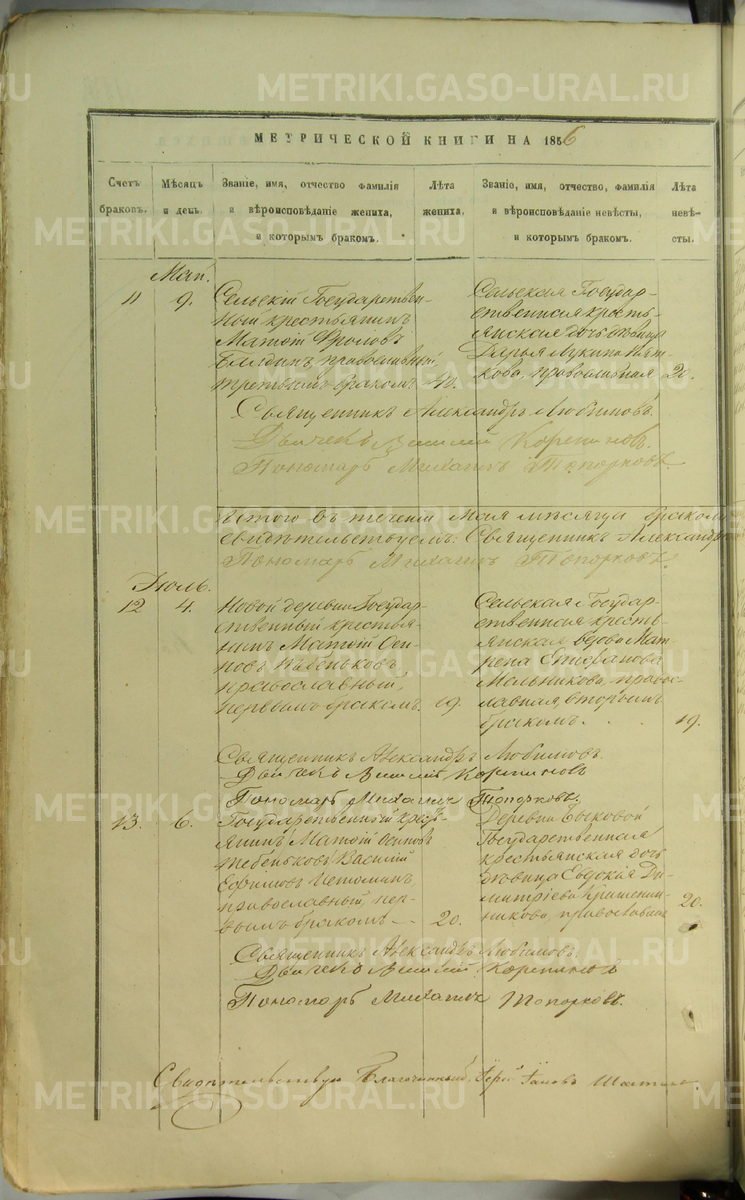 МЕТРИЧЕСКОЙ КНИГИ НА 1856
Счетъ браковъ.
Мѣсяцъ и день.
Званіе, имя, отчество фамилія
и вѣроисповѣданіе жениха,
и которымъ бракомъ.
Лѣта жениха.
Званіе, имя, отчество, фамилія
и вѣроисповѣданіе невѣсты,
и которымъ бракомъ.
Лѣта невѣсты.
Маи.
11
9.
Сельскій Государствен-
ный крестьянинъ
Матѳій Фроловъ
православный,
третьимъ бракомъ
40.
Сельская Государ-
ственная кресть-
янская дочь дѣвица
Дарья Лукина
кова, православная
20.
Священникъ Александръ Любимовъ.
Дьячекъ Василій Корепановъ.
Пономарь Михаилъ Топорковъ
Итого въ теченіи Мая мѣсяца бракомъ
Свидѣтельствуемъ: Священникъ Александръ
Пономарь Михаилъ Топорковъ.
Іюль.
12
4.
Новой деревни Государ-
ственный крестья-
нинъ Матѳій Оси-
повъ Тебеньковъ,
православный,
первымъ бракомъ.
19.
Сельская Государ-
ственная кресть-
янская вдова Мат-
рена Епифанова
Мельникова, право-
славная, вторымъ
бракомъ.
19.
Священникъ Александръ Любимовъ.
Дьячекъ Василій Корепановъ
Пономарь Михаилъ Топорковъ.
13.
6.
Государственный кресть-
янинъ Матѳій Осиповъ
Тебеньковъ Василій
Ефимовъ Истоминъ
православный, пер-
вымъ бракомъ
20.
Деревни Быковой
Государственная
крестьянская дочь
дѣвица Евдокія Ди-
митріева Крашенин-
никова, православная
20.
Священникъ Александръ Любимовъ.
Дьячекъ Василій Корепановъ
Пономарь Михаилъ Топорковъ.
Свидѣтельствую Благочинный,
METRIKI.GASO-URAL.RU